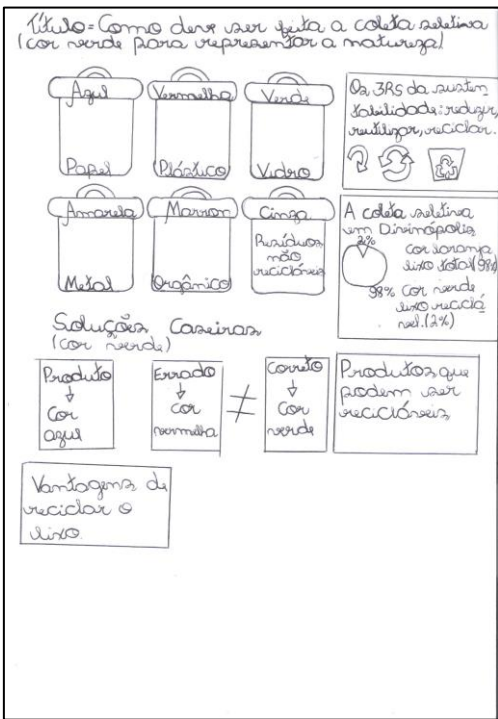 Título = Como deve ser feita a coleta seletiva
(cor verde para representar a matureza)
Azul
Papel
Vermelha
Plástico
Verde
Vidro
Os 3Rs da susten
tabilidade: reduzir,
reutilizar, reciclar.
Amarela
Metal
Marrom
Orgânico
Cinza
Resíduos
não
recicláveis
A coleta seletiva
em Divinópolis
2%
cor laranja
lixo total (98%)
98% cor verde
lixo reciclá
vel. (2%)
Soluções Caseiras
(cor verde)
Produto
↓
Cor
azul
Errado
↓
cor
vermelha
≠
Correto
↓
Cor
verde
Produtos que
podem ser
recicláveis
Vantagens de
reciclar o
lixo